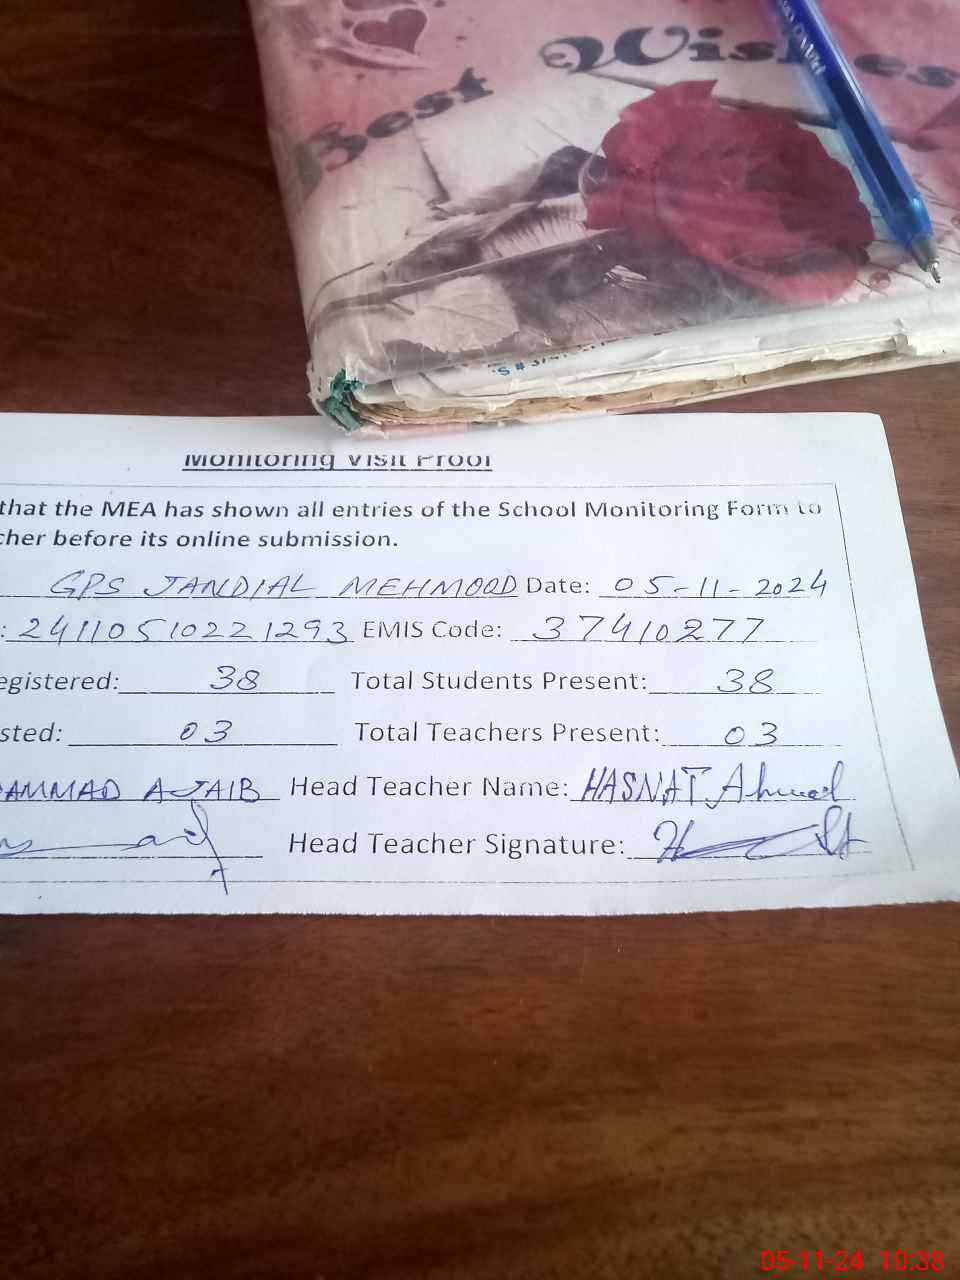 Best Wishes
PIANO
Monitoring Visit Proof
that the MEA has shown all entries of the School Monitoring Form to
cher before its online submission.
GPS JANDIAL MEHMOOD Date: 05-11-2024
: 24110510221293 EMIS Code: 37410277
egistered: 38 Total Students Present: 38
sted: 03 Total Teachers Present: 03
AMMAD AJAIB Head Teacher Name: HASNAT Ahmad
Head Teacher Signature:
05-11-24 10:38